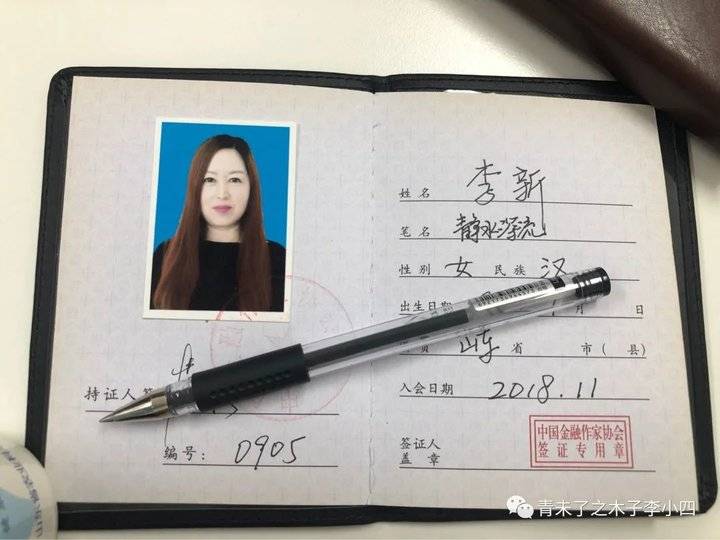 持证人
编号： 0905
姓名 李新
笔名 静水深流
性别 女 民族 汉
出生日期 月 日
山东 省 市（县）
入会日期 2018.11
签证人
盖 章
中国金融作家协会
签证专用章
青未了之木子李小四